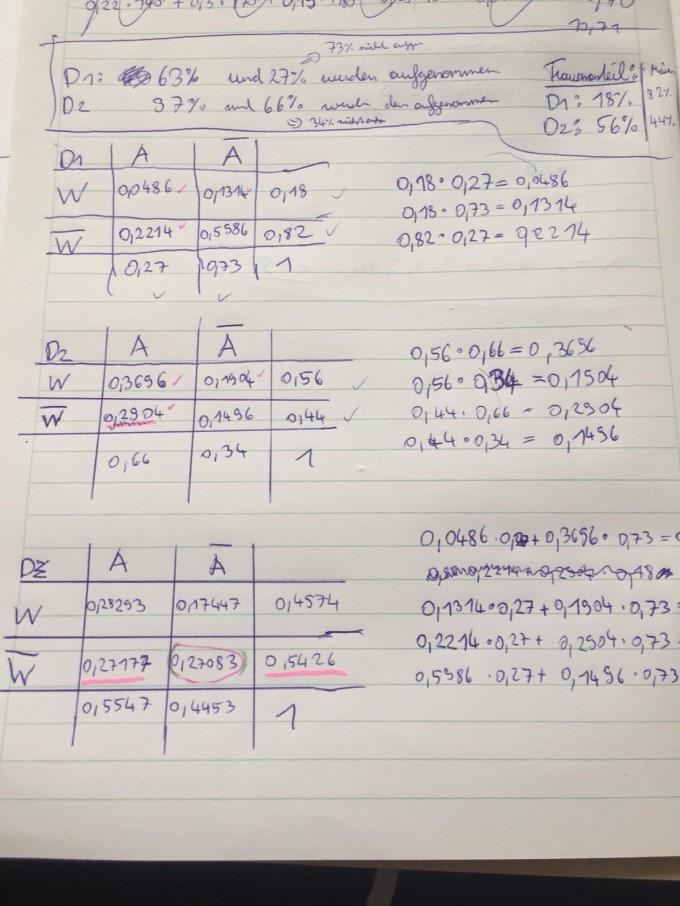 73% nicht aufg.
D1: 63% und 27% werden aufgenommen
Frauenanteil:
D1: 18% 82%
D2 37% und 66% werden aufgenommen
=> 34% nicht
D2: 56% 44%
D1 A A̅
W 0,0486 0,1314 0,18
W̅ 0,2214 0,5986 0,82
0,27 0,73 1
0,18 · 0,27 = 0,0486
0,18 · 0,73 = 0,1314
0,82 · 0,27 = 0,2214
D2 A A̅
W 0,3696 0,1904 0,56
W̅ 0,2904 0,1496 0,44
0,66 0,34 1
0,56 · 0,66 = 0,3696
0,56 · 0,34 = 0,1904
0,44 · 0,66 = 0,2904
0,44 · 0,34 = 0,1496
A A̅
W 0,28293 0,17447 0,4574
W̅ 0,27177 0,27083 0,5426
0,5547 0,4453 1
0,0486 · + 0,3696 · 0,73 =
0,1314 · 0,27 + 0,1904 · 0,73 =
0,2214 · 0,27 + 0,2904 · 0,73
0,5986 · 0,27 + 0,1496 · 0,73